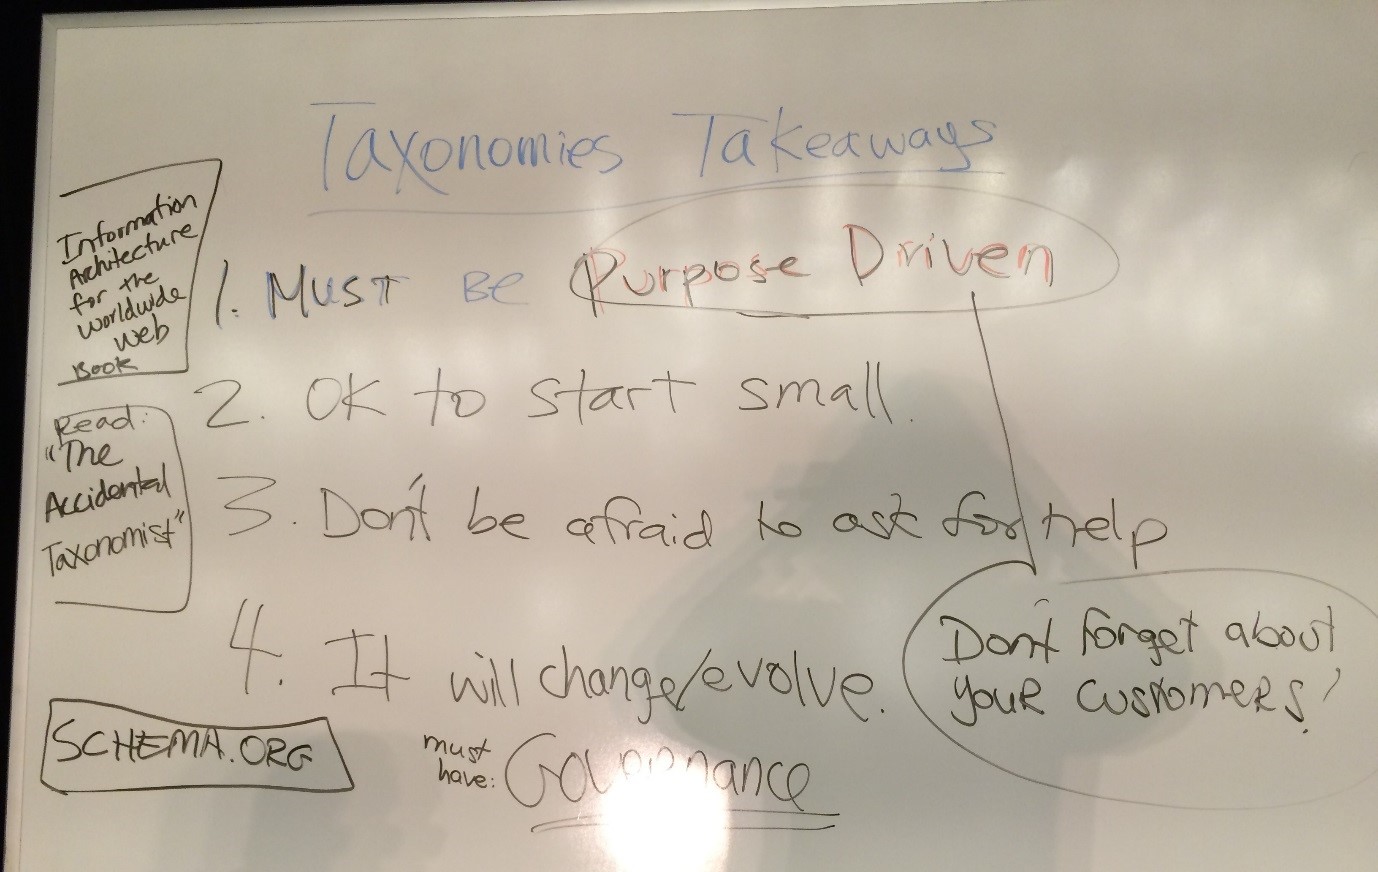 Taxonomies Takeaways
Information
Architecture
for the
Worldwide
Web
Book
Read:
"The
Accidental
Taxonomist"
SCHEMA.ORG
1. MUST BE Purpose Driven
2. OK to start small.
3. Don't be afraid to ask for help
4. It will change/evolve.
must
have: Governance
Don't forget about
your customers!